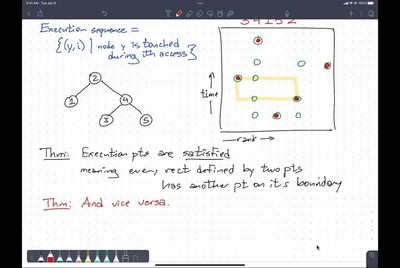 9:41 AM Tue Jan 9
34152
Execution sequence =
{(y,i) | node y is touched
during ith access}
2
1
4
3
5
time
rank
Thm: Execution pts are satisfied
meaning every rect defined by two pts
has another pt on its boundary
Thm: And vice versa.